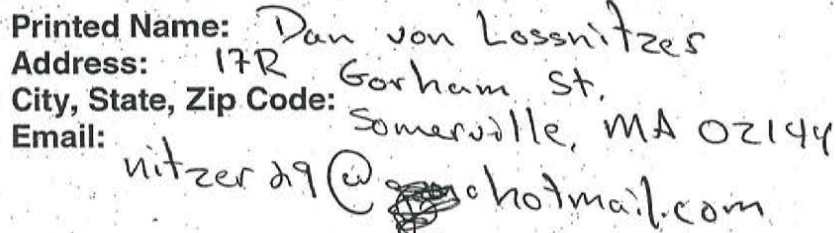 Printed Name: Dan von Lossnitzer
Address: 17R Gorham St.
City, State, Zip Code: Somerville, MA 02144
Email: nitzer29@hotmail.com